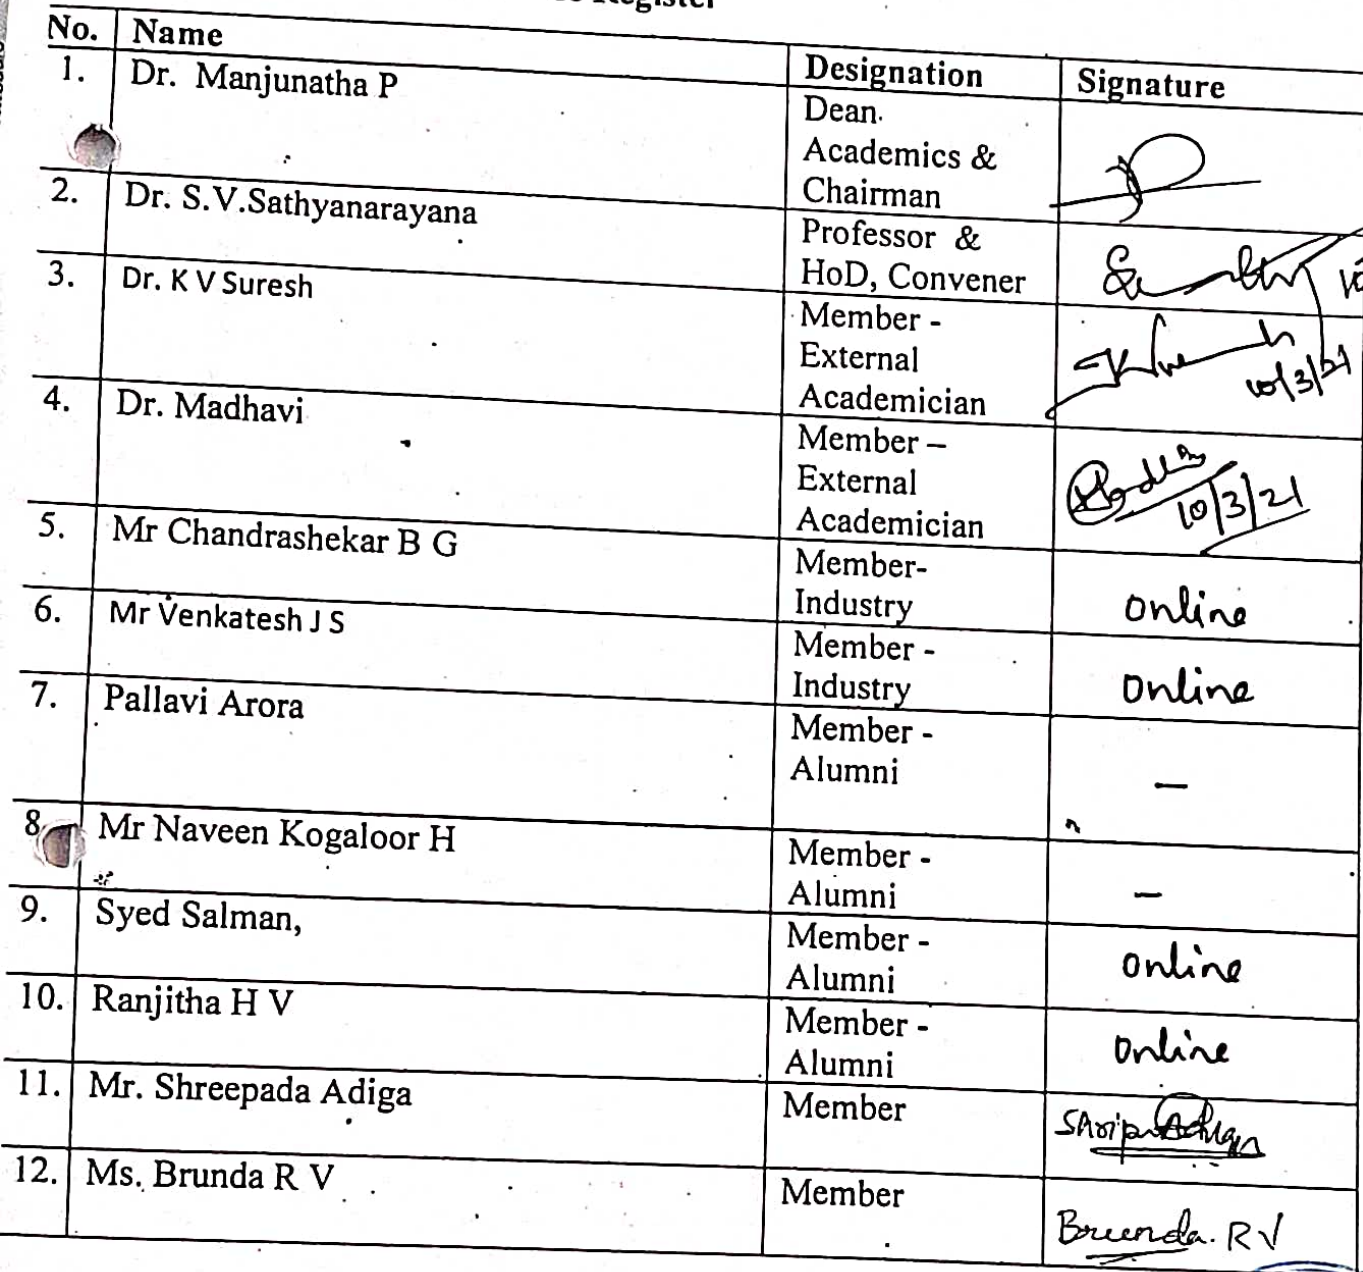 Register
No. Name Designation Signature
1. Dr. Manjunatha P Dean.
Academics &
Chairman
2. Dr. S.V.Sathyanarayana Professor &
HoD, Convener
3. Dr. K V Suresh Member -
External
Academician 10/3/21
4. Dr. Madhavi Member –
External
Academician 10/3/21
5. Mr Chandrashekar B G Member-
Industry online
6. Mr Venkatesh J S Member -
Industry online
7. Pallavi Arora Member -
Alumni –
8. Mr Naveen Kogaloor H Member -
Alumni –
9. Syed Salman, Member -
Alumni online
10. Ranjitha H V Member -
Alumni online
11. Mr. Shreepada Adiga Member
12. Ms. Brunda R V Member Brunda. RV